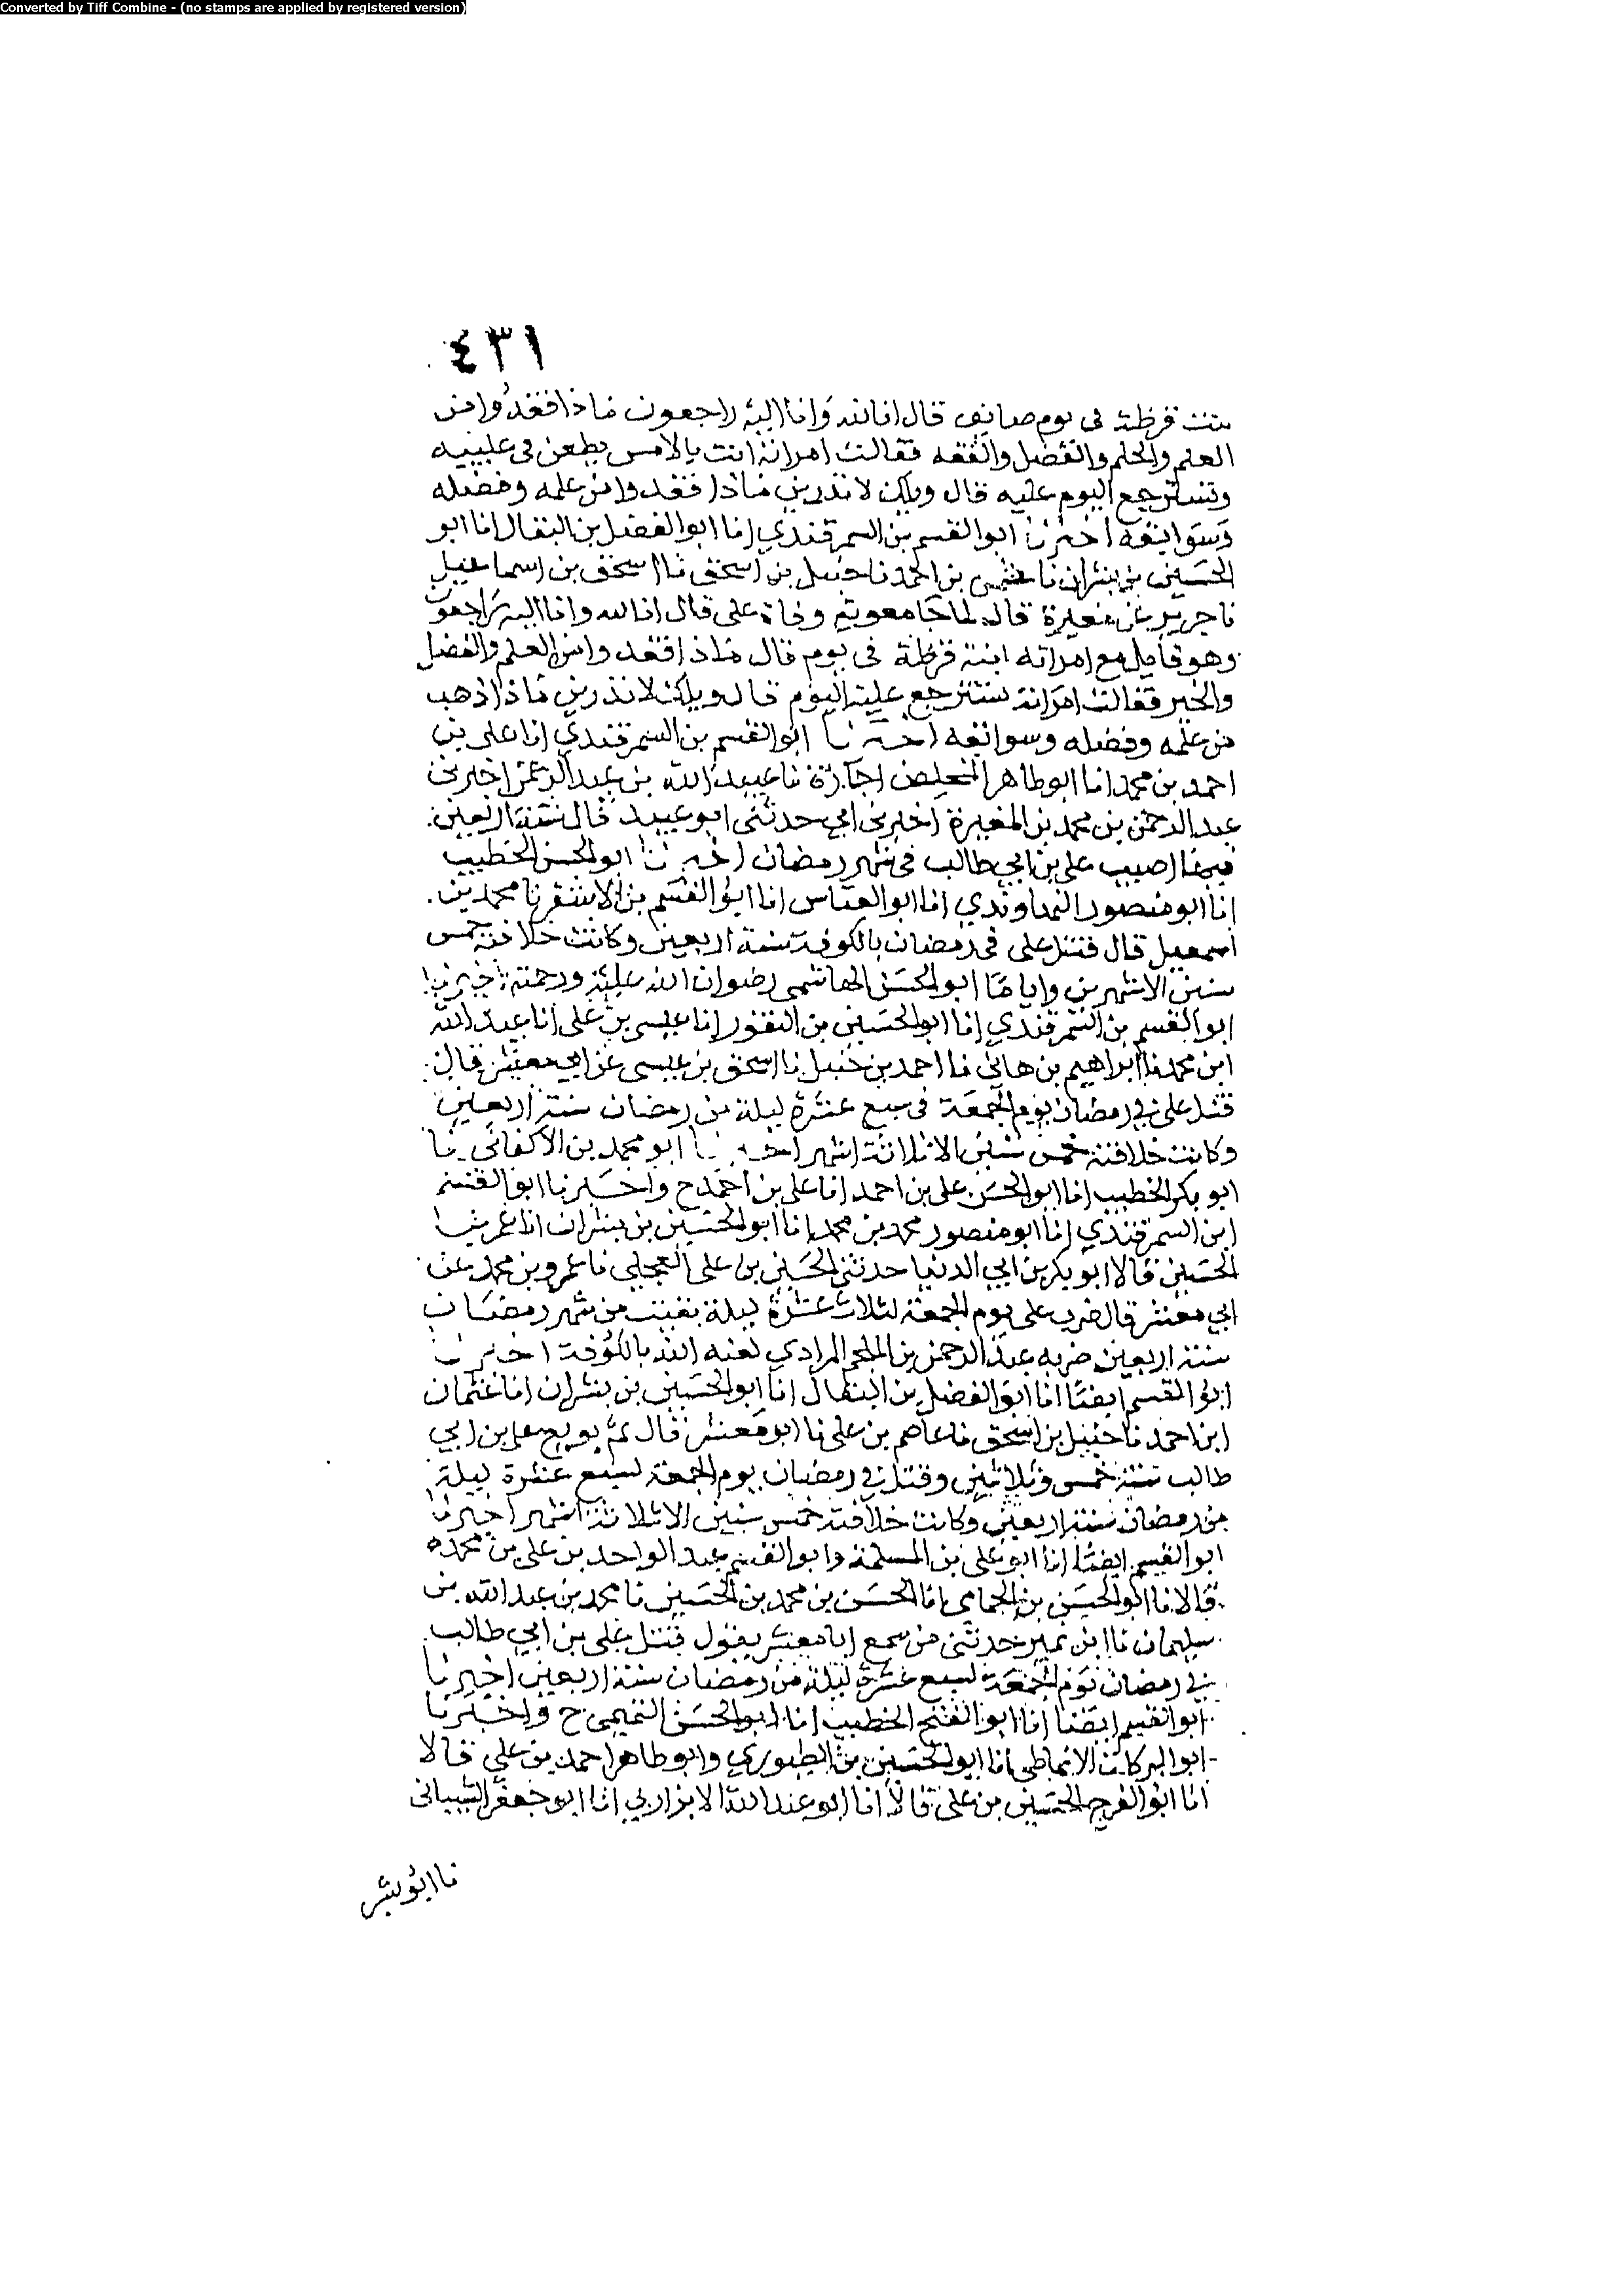 Converted by Tiff Combine - (no stamps are applied by registered version)
٤٣١
بنت قرظة في يوم صائف قال انا لله وانا اليه راجعون ماذا فقدوا من
العلم والحلم والفضل والفقه فقالت امراته انت بالامس يطعن في عليبيه
وتسترجع اليوم عليه قال ويلك لا تدرين ماذا فقدوا من علمه وفضله
وسوابقه اخبرنا ابو القسم بن السمرقندي انا ابو الفضل بن البقال انا ابو
الحسين بن بشران نا عثمن بن احمد نا حنبل بن اسحق نا اسحق بن اسماعيل
نا جرير عن مغيرة قال لما جا معوية وفاة علي قال انا لله وانا اليه راجعون
وهو قايل مع امراته ابنة قرظة في يوم قال ماذا فقدوا من العلم والفضل
والخير فقالت امراته تسترجع عليه اليوم قال ويلك لا تدرين ماذا ذهب
من علمه وفضله وسوابقه اخبرنا ابو القسم بن السمرقندي انا علي بن
احمد بن محمد انا ابو طاهر المخلص اجازة نا عبيد الله بن عبد الرحمن اخبرني
عبد الرحمن بن محمد بن المغيرة اخبرني ابي حدثني ابو عبيد قال سنة اربعين
فيها اصيب علي بن ابي طالب في شهر رمضان اخبرنا ابو الحسن الخطيب
انا ابو منصور النهاوندي انا ابو العباس انا ابو القسم بن الاشقر نا محمد بن
اسمعيل قال قتل علي في رمضان بالكوفة سنة اربعين وكانت خلافته خمس
سنين الا شهرين واياما ابو الحسن الهاشمي رضوان الله عليه ورحمته اخبرنا
ابو القسم بن السمرقندي انا ابو الحسين بن النقور انا عيسى بن علي انا عبد الله
ابن محمد نا ابراهيم بن هاني نا احمد بن حنبل نا اسحق بن عيسى عن ابي معشر قال
قتل علي في رمضان يوم الجمعة في سبع عشرة ليلة من رمضان سنة اربعين
وكانت خلافته خمس سنين الا ثلاثة اشهر اخبرنا ابو محمد بن الاكفاني نا
ابو بكر الخطيب انا ابو الحسن علي بن احمد انا علي بن احمد ح واخبرنا ابو القسم
ابن السمرقندي انا ابو منصور محمد بن محمد انا ابو الحسين بن بشران انا عمر بن
الحسين قالا ابو بكر بن ابي الدنيا حدثني الحسين بن علي العجلي نا عمرو بن محمد عن
ابي معشر قال ضرب علي يوم الجمعة لثلاث عشرة ليلة بقيت من شهر رمضان
سنة اربعين ضربه عبد الرحمن بن الملجم المرادي لعنه الله بالكوفة اخبرنا
ابو القسم ايضا انا ابو الفضل بن البقال انا ابو الحسين بن بشران انا عثمان
ابن احمد نا حنبل بن اسحق نا عاصم بن علي نا ابو معشر قال ثم بويع علي بن ابي
طالب سنة خمس وثلاثين وقتل في رمضان يوم الجمعة لسبع عشرة ليلة
من رمضان سنة اربعين وكانت خلافته خمس سنين الا ثلاثة اشهر اخبرنا
ابو القسم ايضا انا ابو علي بن المسلمة وابو القسم عبد الواحد بن علي بن محمد
قالا انا ابو الحسن بن الحمامي انا الحسن بن محمد بن الحسين نا محمد بن عبد الله بن
سليمان نا ابن نمير حدثني من سمع ابا معشر يقول قتل علي بن ابي طالب
في رمضان يوم الجمعة لسبع عشرة ليلة من رمضان سنة اربعين اخبرنا
ابو القسم ايضا انا ابو الفتح الخطيب انا ابو الحسن التميمي ح واخبرنا
ابو البركات الانماطي انا ابو الحسين بن الطيوري وابو طاهر احمد بن علي قالا
انا ابو الفرج الحسين بن علي قالا انا ابو عبد الله الابزاري انا ابو جعفر الشيباني
نا ابو بشر